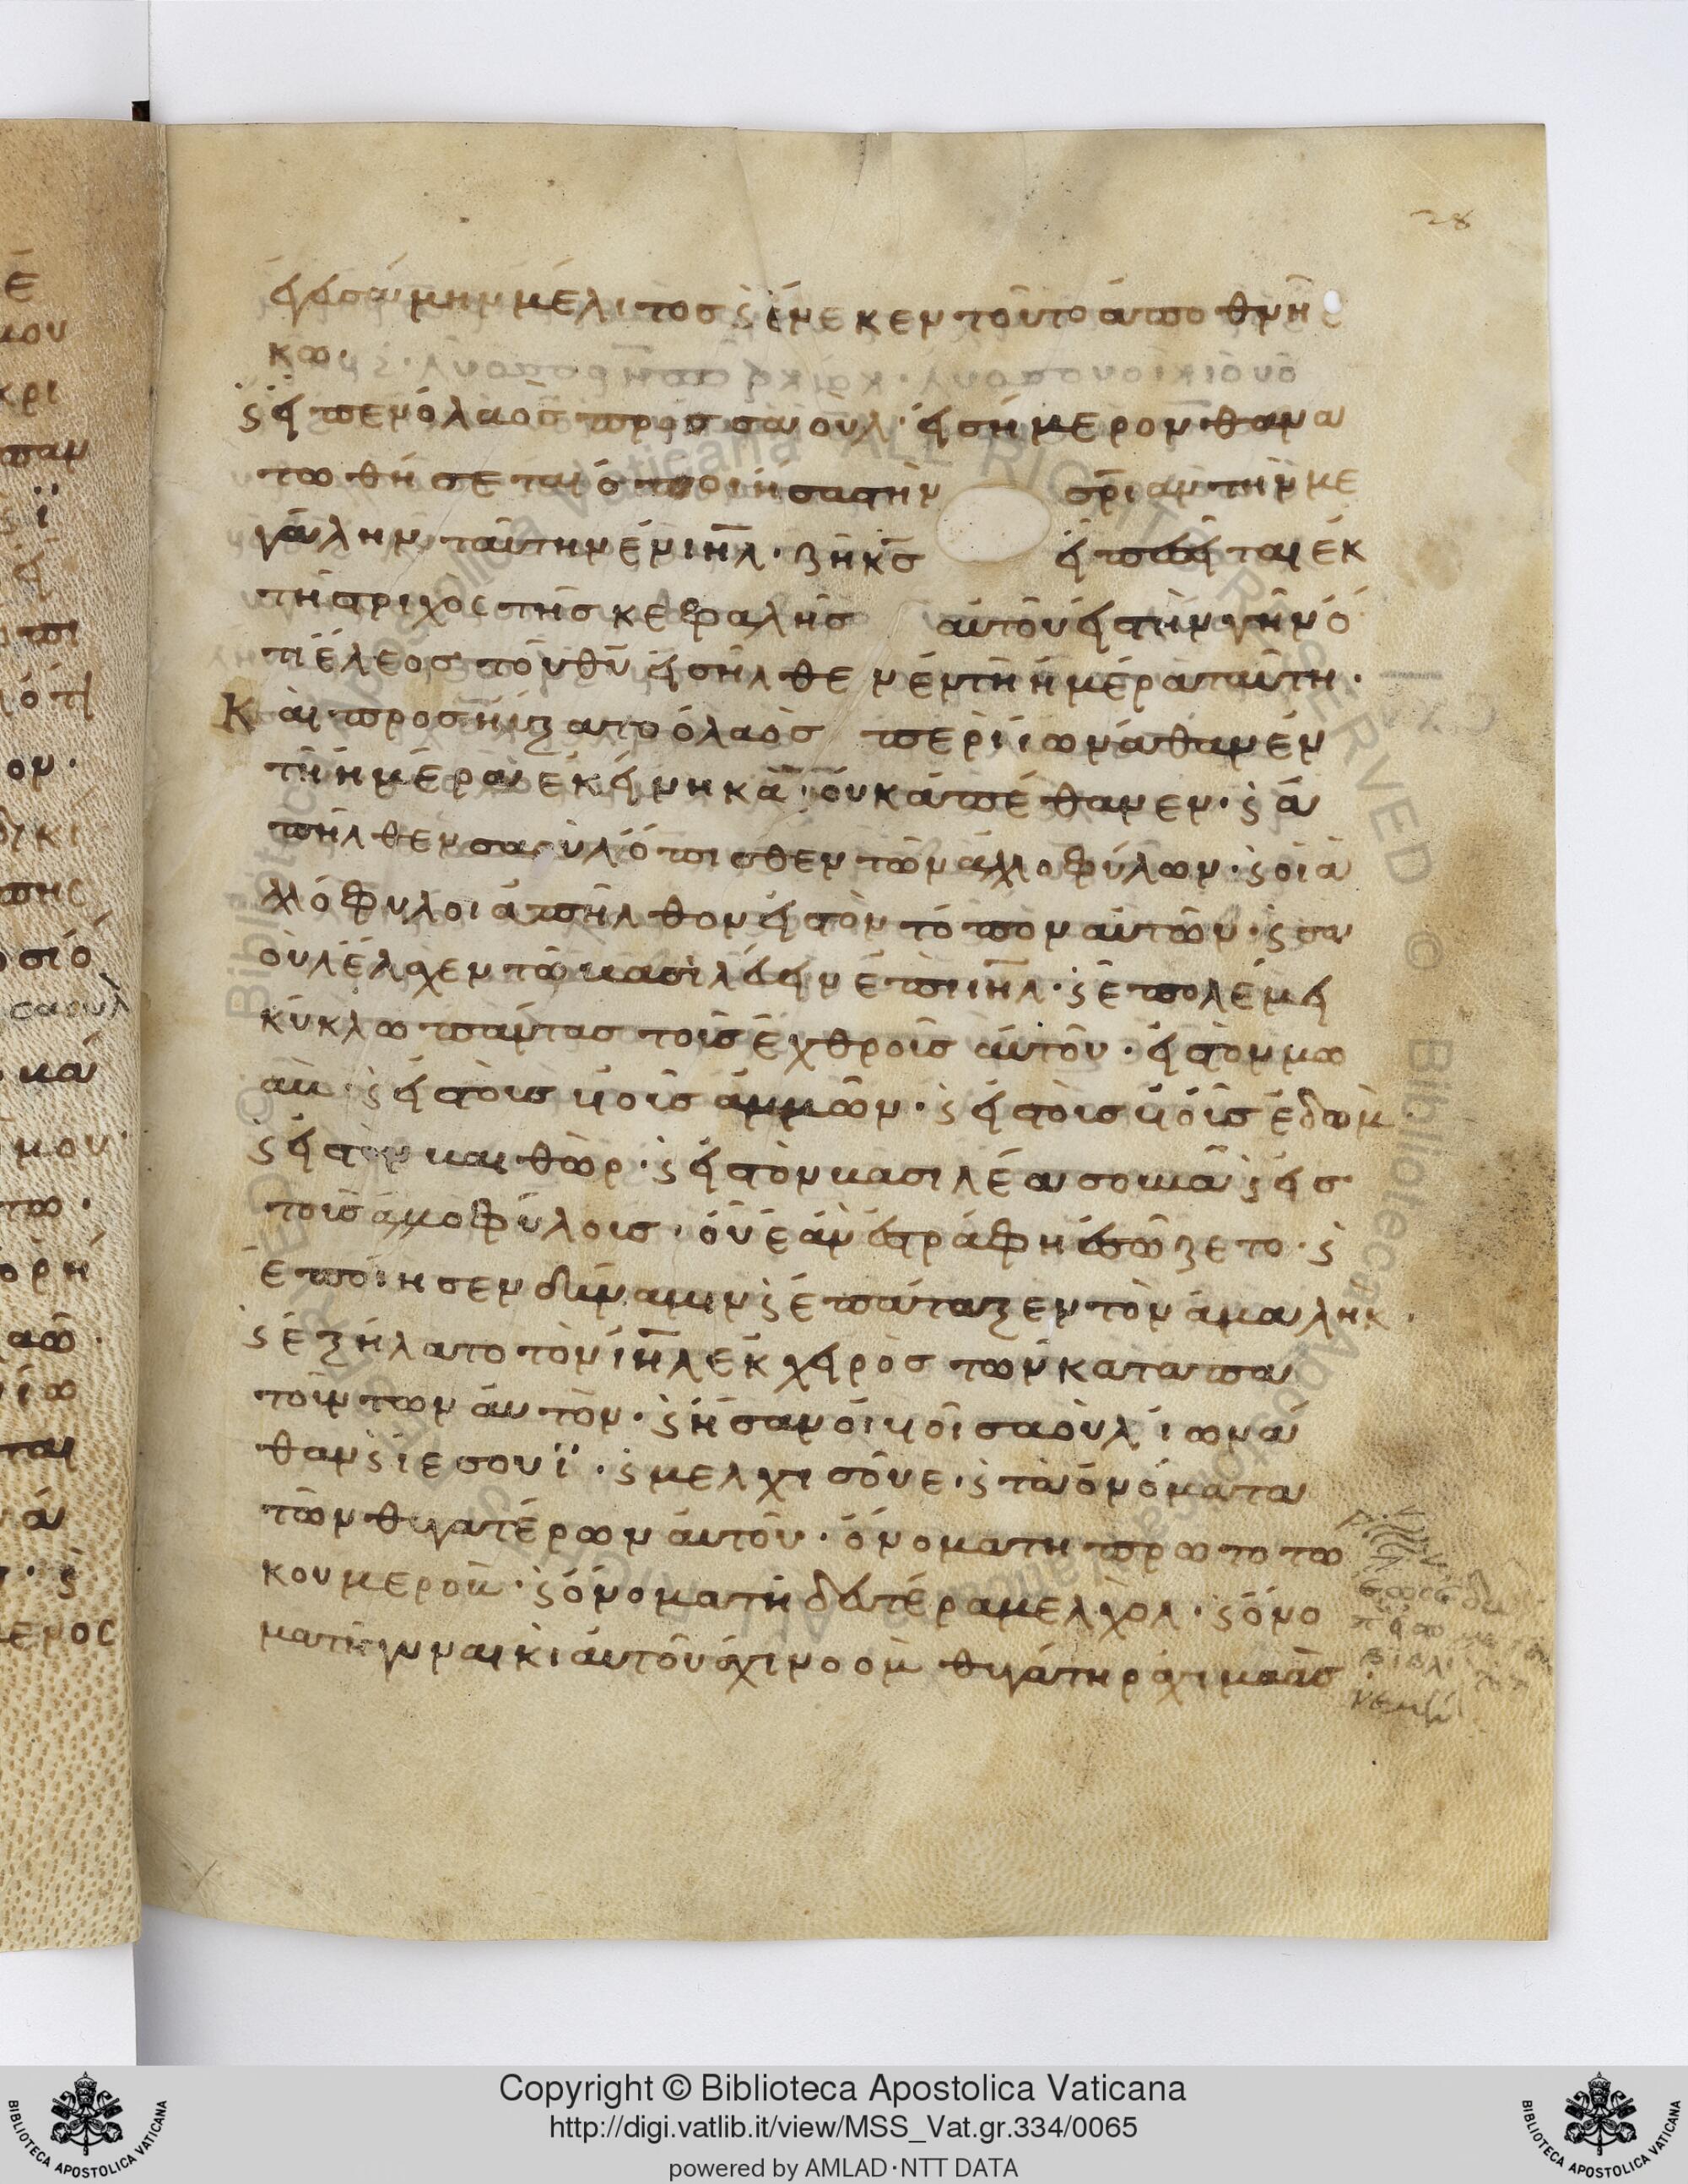 28
ἐγευσάμην μέλιτος ϗ ἕνεκεν τοῦτο ἀποθνή
κω·
ϗ εἶπεν ὁ λαὸς πρὸς σαούλ· εἰ σήμερον θανα
τωθήσεται ὁ ποιήσας τὴν σρίαν τὴν με
γάλην ταύτην ἐν ιηλ· ζῆ κς εἰ πεσεῖται ἐκ
τῆς τριχὸς τῆς κεφαλῆς αὐτοῦ εἰς τὴν γῆν ὅ
τι ἔλεος τοῦ θυ εἰσῆλθεν ἐν τῇ ἡμέρα ταύτη·
Καὶ προσηύξατο ὁ λαὸς περὶ ἰωνάθαν ἐν
τῇ ἡμέρα ἐκείνη κα· οὐκ ἀπέθανεν· ϗ ἀ
πῆλθεν σαοὺλ ὄπισθεν τῶν ἀλλοφύλων· ϗ οἱ ἀ
λλόφυλοι ἀπῆλθον εἰς τὸν τόπον αὐτῶν· ϗ σα
οὺλ ἔλαχεν τῶ βασιλεύειν ἐπὶ ιηλ· ϗ ἐπολέμει
κύκλω πάντας τοῖς ἐχθροῖς αὐτοῦ· εἰς τὸν μω
αβ· ϗ εἰς τοὺς υἱοῖς ἀμμῶν· ϗ εἰς τοὺς υἱοῖς ἐδωμ·
ϗ εἰς τὸν βαιθὼρ· ϗ εἰς τὸν βασιλέα σουβᾶ ϗ εἰς
τοὺς ἀλλοφύλοις· οὗ ἐὰν ἐστράφη ἐσώζετο· ϗ
ἐποίησεν δύναμιν ϗ ἐπάταξεν τὸν ἀμαλήκ·
ϗ ἐξήλατο τὸν ιηλ ἐκ χειρὸς τῶν καταπα
τούντων αὐτὸν· ϗ ἦσαν οἱ υἱοὶ σαοὺλ ἰωνά
θαν ϗ ἰεσουϊ· ϗ μελχισοῦε· ϗ τὰ ὀνόματα
τῶν θυγατέρων αὐτοῦ· ὄνομα τῆ πρωτοτω
κου μερὸβ· ϗ ὄνομα τῆ δευτέρα μελχόλ· ϗ ὄνο
μα τῇ γυναικὶ αὐτοῦ ἀχινοὸμ θυγάτηρ ἀχιμαὰς·
Copyright © Biblioteca Apostolica Vaticana
http://digi.vatlib.it/view/MSS_Vat.gr.334/0065
powered by AMLAD·NTT DATA
BIBLIOTECA APOSTOLICA VATICANA
BIBLIOTECA APOSTOLICA VATICANA